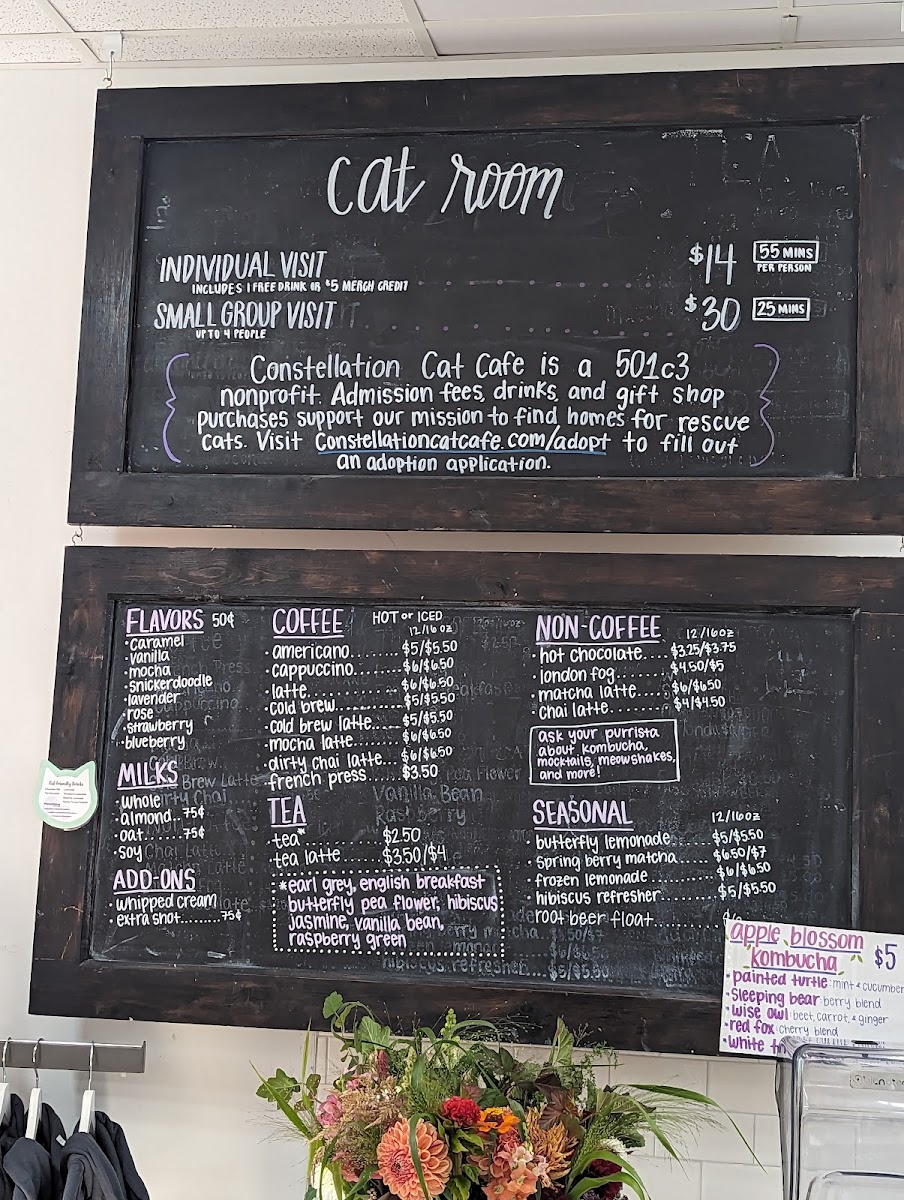 cat room
INDIVIDUAL VISIT $14 55 MINS
INCLUDES 1 FREE DRINK OR $5 MERCH CREDIT PER PERSON
SMALL GROUP VISIT $30 25 MINS
UP TO 4 PEOPLE
Constellation Cat Cafe is a 501c3
nonprofit. Admission fees, drinks, and gift shop
purchases support our mission to find homes for rescue
cats. Visit Constellationcatcafe.com/adopt to fill out
an adoption application.
FLAVORS 50¢
• caramel
• vanilla
• mocha
• snickerdoodle
• lavender
• rose
• strawberry
• blueberry
MILKS
• whole
• almond.. 75¢
• oat..... 75¢
• soy
ADD-ONS
• whipped cream
• extra shot........ 75¢
COFFEE HOT or ICED
12/16 oz
• americano........ $5/$5.50
• cappuccino...... $6/$6.50
• latte.............. $6/$6.50
• cold brew........ $5/$5.50
• cold brew latte... $5/$5.50
• mocha latte...... $6/$6.50
• dirty chai latte... $6/$6.50
• french press.... $3.50
TEA
• tea* $2.50
• tea latte..... $3.50/$4
*earl grey, english breakfast
butterfly pea flower, hibiscus
jasmine, vanilla bean,
raspberry green
NON-COFFEE 12/16oz
• hot chocolate.... $3.25/$3.75
• london fog....... $4.50/$5
• matcha latte..... $6/$6.50
• chai latte........ $4/$4.50
ask your purrista
about kombucha,
mocktails, meowshakes,
and more!
SEASONAL 12/16oz
• butterfly lemonade..... $5/$5.50
• spring berry matcha..... $6.50/$7
• frozen lemonade........ $6/$6.50
• hibiscus refresher....... $5/$5.50
root beer float
apple blossom
kombucha $5
• painted turtle: mint + cucumber
• sleeping bear: berry blend
• wise owl: beet, carrot, + ginger
• red fox: cherry blend
• white